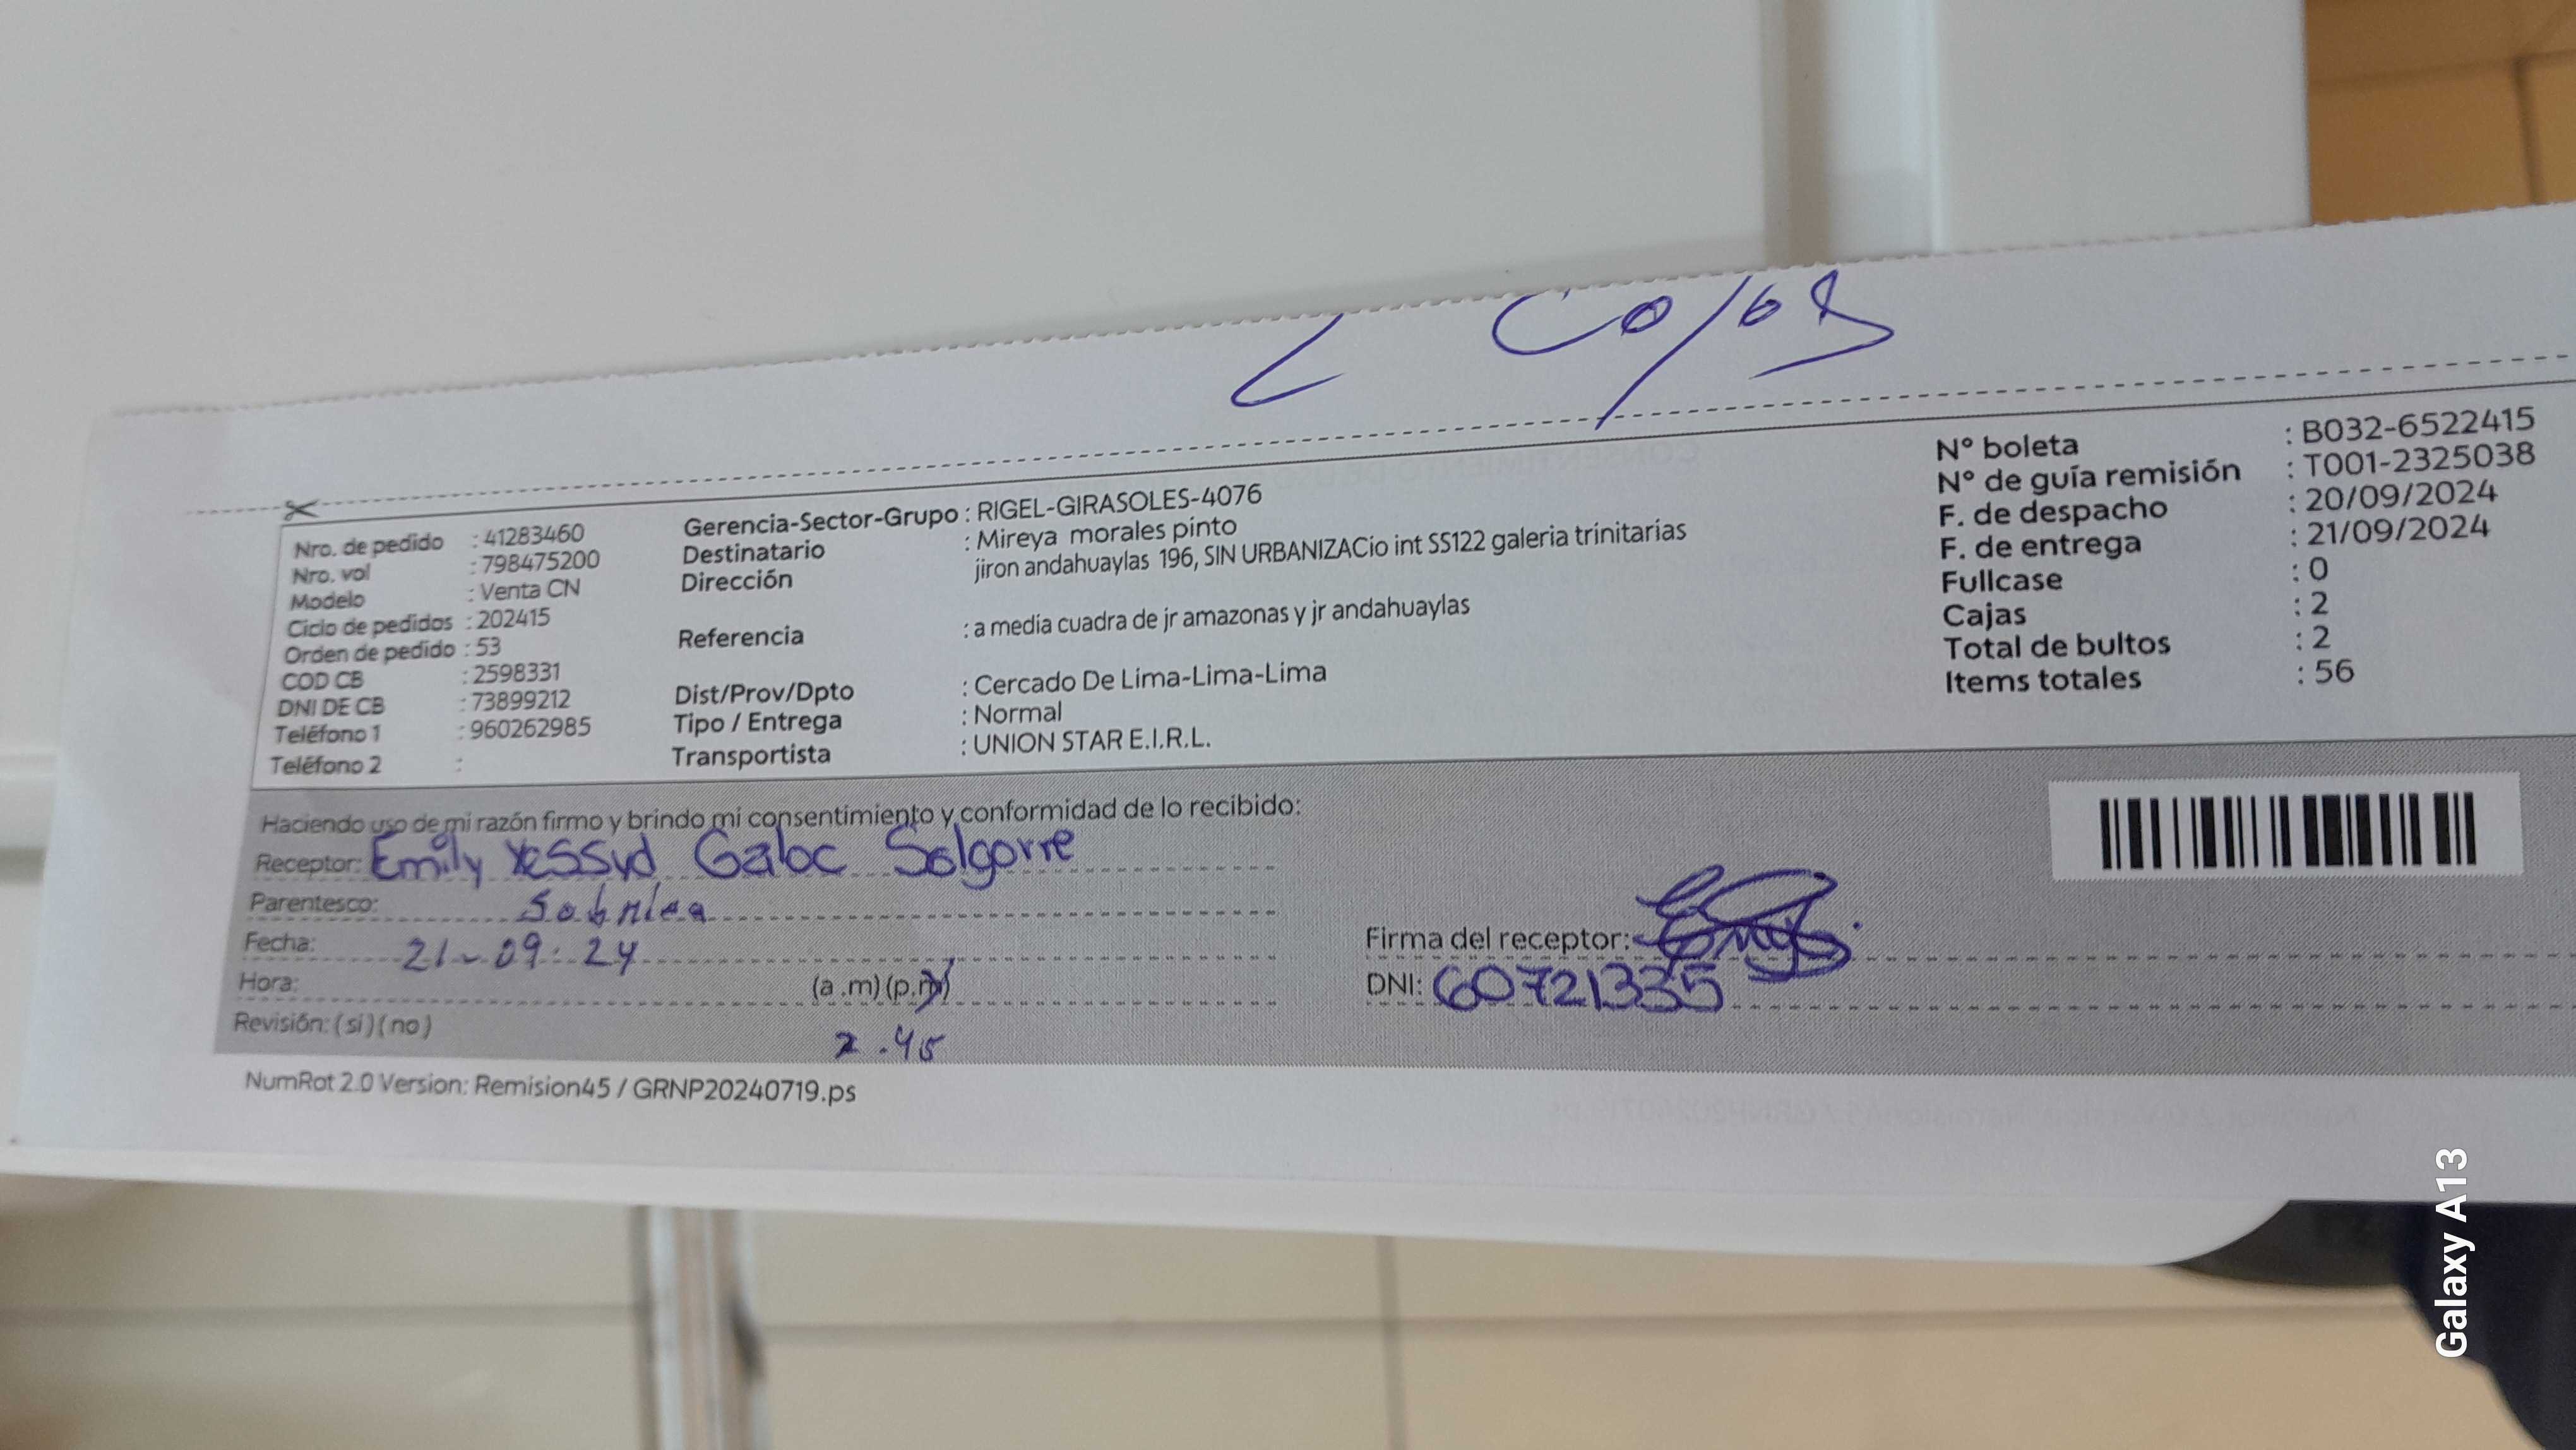 2 Cajas
Nro. de pedido : 41283460
Nro. vol : 798475200
Modelo : Venta CN
Ciclo de pedidos : 202415
Orden de pedido : 53
COD CB : 2598331
DNI DE CB : 73899212
Teléfono 1 : 960262985
Teléfono 2 :
Gerencia-Sector-Grupo : RIGEL-GIRASOLES-4076
Destinatario : Mireya morales pinto
Dirección : jiron andahuaylas 196, SIN URBANIZACio int SS122 galeria trinitarias
Referencia : a media cuadra de jr amazonas y jr andahuaylas
Dist/Prov/Dpto : Cercado De Lima-Lima-Lima
Tipo / Entrega : Normal
Transportista : UNION STAR E.I.R.L.
N° boleta : B032-6522415
N° de guía remisión : T001-2325038
F. de despacho : 20/09/2024
F. de entrega : 21/09/2024
Fullcase : 0
Cajas : 2
Total de bultos : 2
Items totales : 56
Haciendo uso de mi razón firmo y brindo mi consentimiento y conformidad de lo recibido:
Receptor: Emily
Parentesco:
Fecha: 21-09-24
Hora: (a.m)(p.m)
2.45
Revisión: (si)(no)
Firma del receptor:
DNI: 60721335
NumRot 2.0 Version: Remision45 / GRNP20240719.ps
Galaxy A13